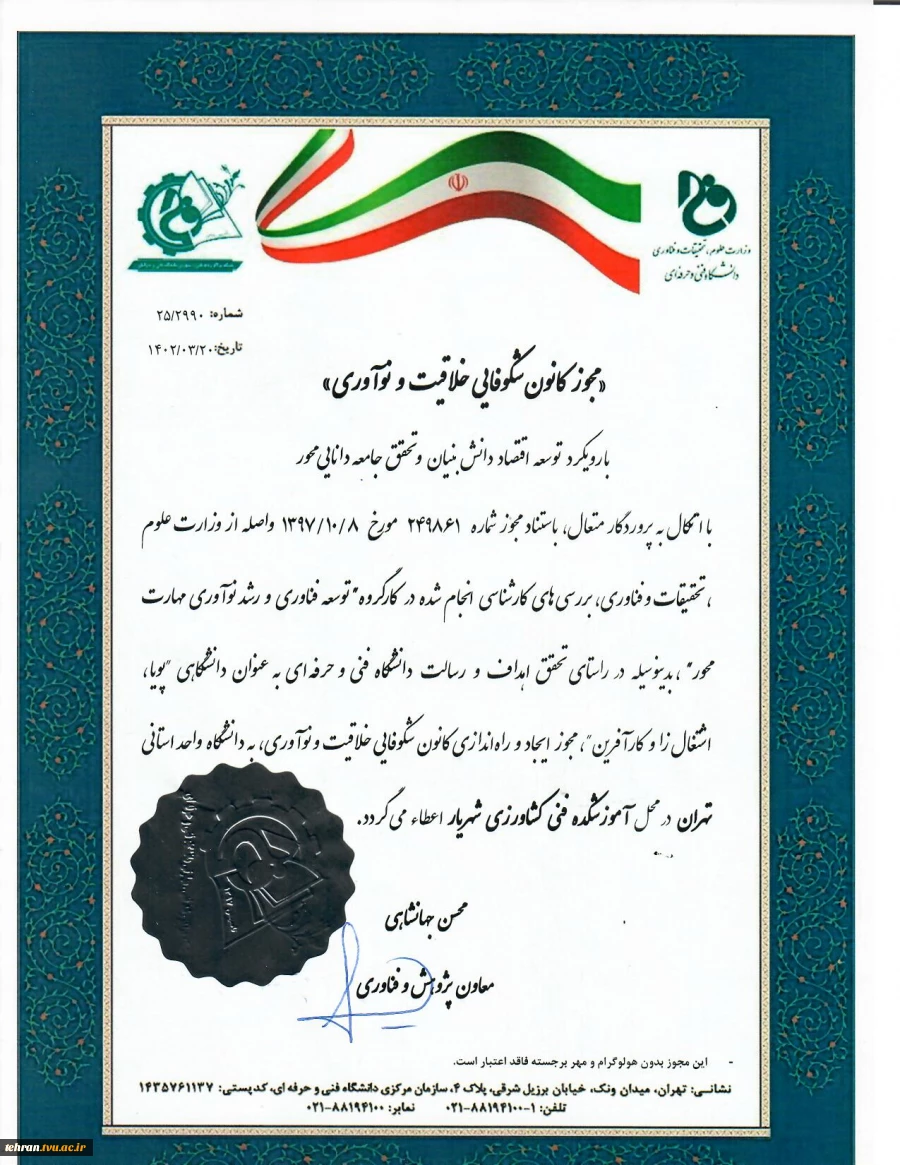 وزارت علوم، تحقیقات و فناوری
دانشگاه فنی و حرفه ای
شماره: ۲۵/۲۹۹۰
تاریخ: ۱۴۰۲/۰۳/۲۰
«مجوز کانون شکوفایی خلاقیت و نوآوری»
با رویکرد توسعه اقتصاد دانش بنیان و تحقق جامعه دانایی محور
با اتکال به پروردگار متعال، باستناد مجوز شماره ۲۴۹۸۶۱ مورخ ۱۳۹۷/۱۰/۸ واصله از وزارت علوم
، تحقیقات و فناوری، بررسی های کارشناسی انجام شده در کارگروه "توسعه فناوری و رشد نوآوری مهارت
محور"، بدینوسیله در راستای تحقق اهداف و رسالت دانشگاه فنی و حرفه ای به عنوان دانشگاهی "پویا،
اشتغال زا و کارآفرین"، مجوز ایجاد و راه اندازی کانون شکوفایی خلاقیت و نوآوری، به دانشگاه واحد استانی
تهران در محل آموزشکده فنی کشاورزی شهریار اعطاء می گردد.
محسن جهانشاهی
معاون پژوهش و فناوری
- این مجوز بدون هولوگرام و مهر برجسته فاقد اعتبار است.
نشانی: تهران، میدان ونک، خیابان برزیل شرقی، پلاک ۴، سازمان مرکزی دانشگاه فنی و حرفه ای، کدپستی: ۱۴۳۵۷۶۱۱۳۷
تلفن: ۱-۸۸۱۹۴۱۰۰-۰۲۱ نمابر: ۸۸۱۹۴۱۰۰-۰۲۱
tehran.tvu.ac.ir